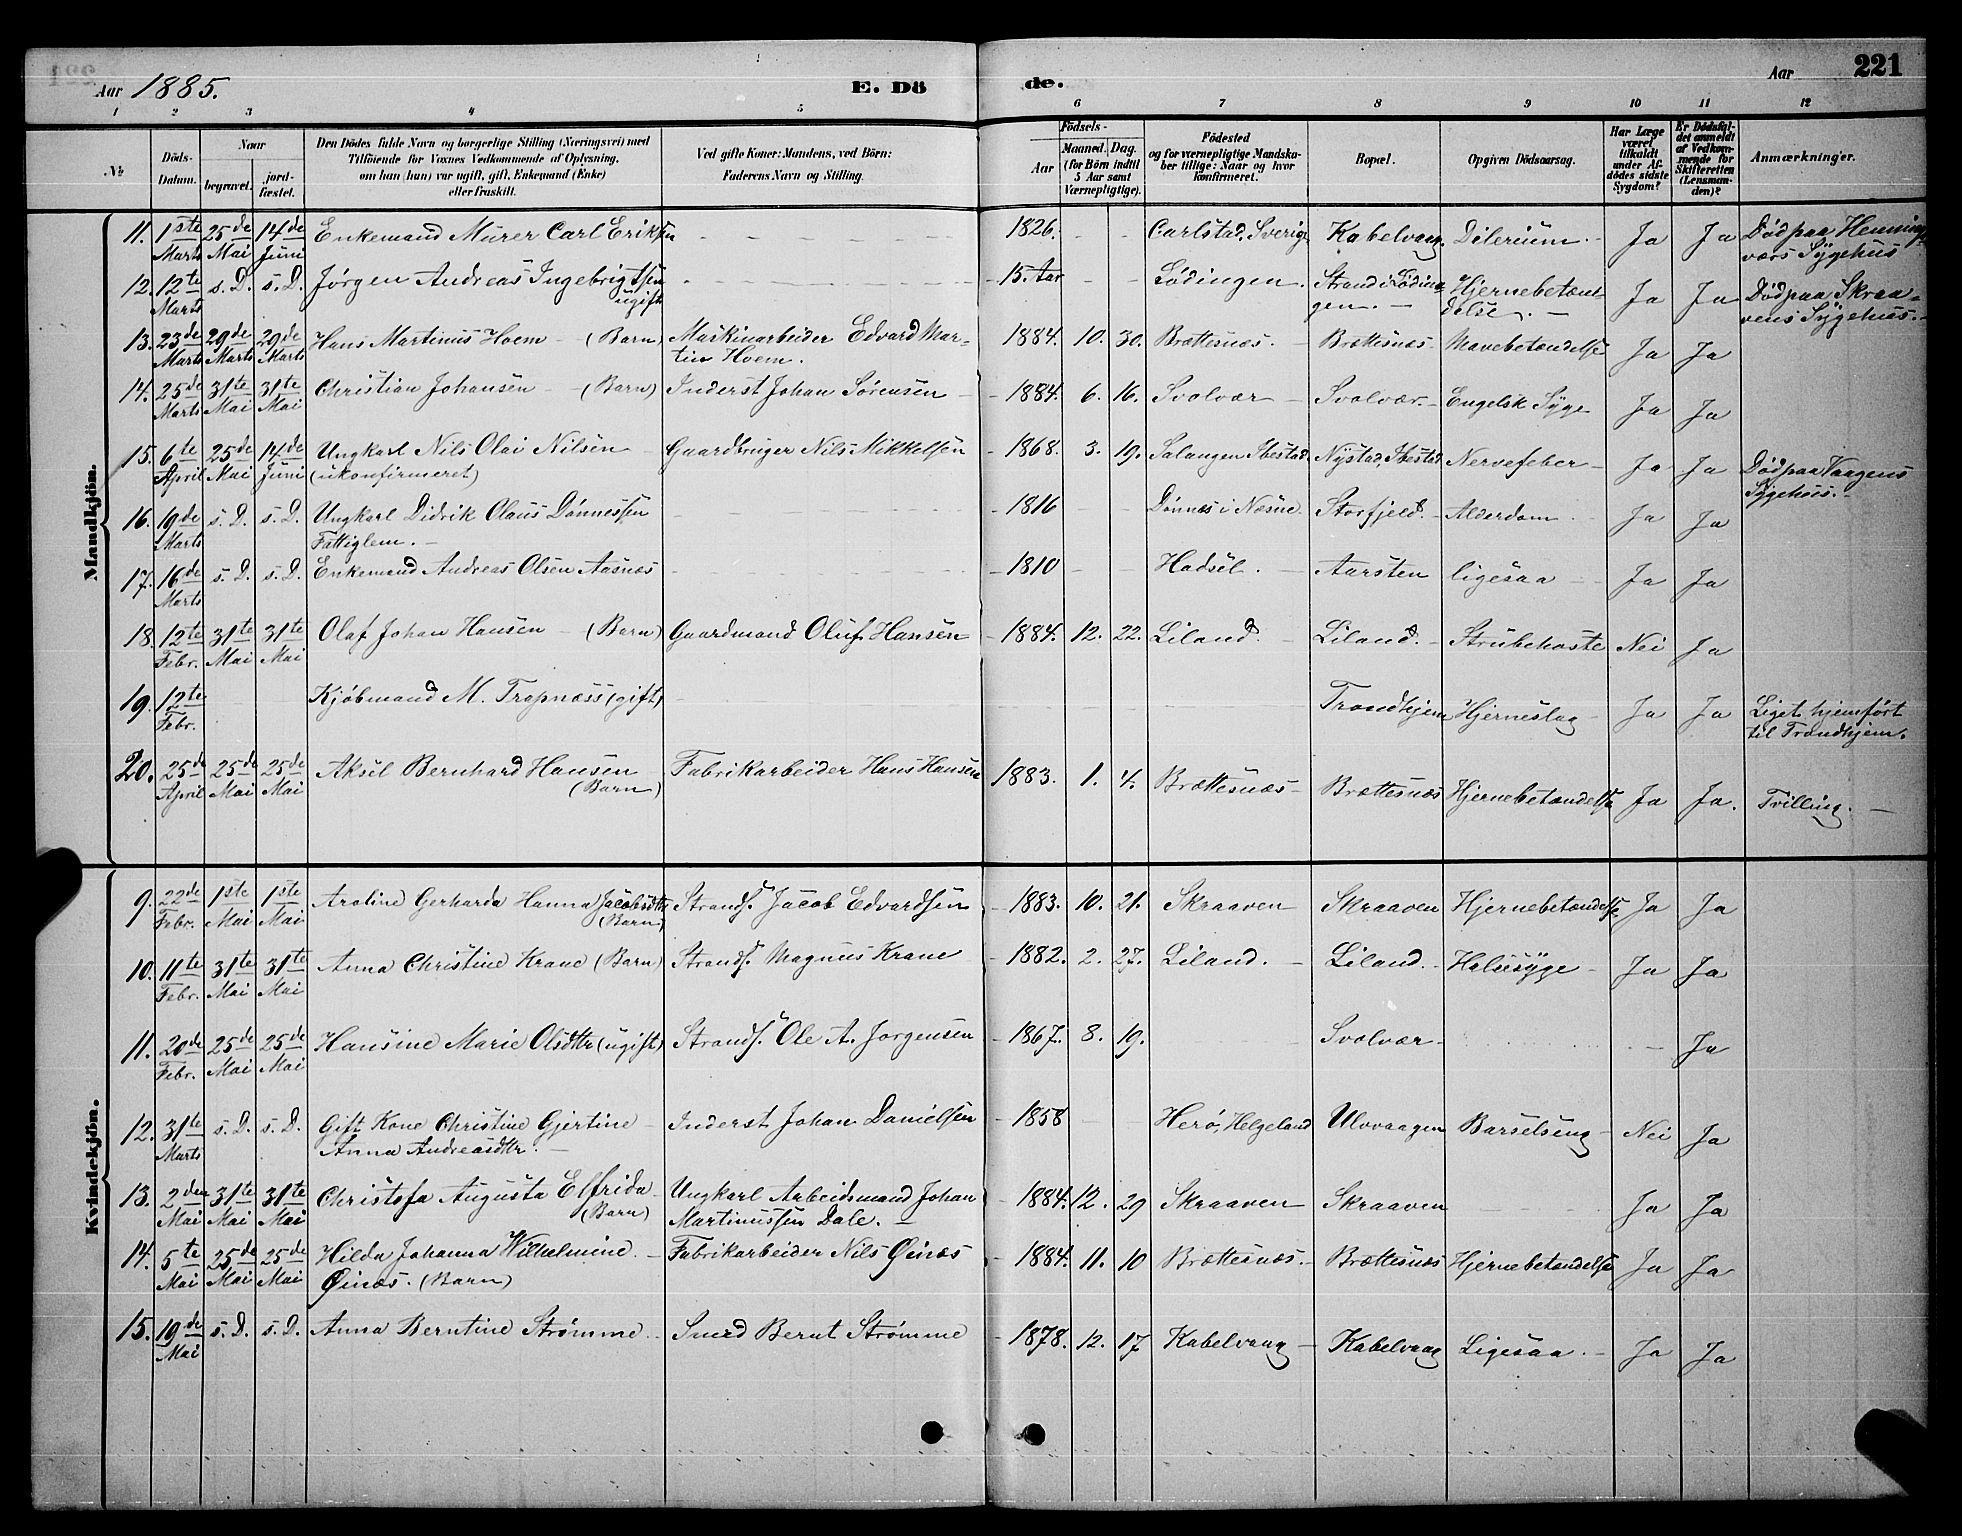 Aar 1885. E. Dö de. Aar 221
1 2 3 4 5 6 7 8 9 10 11 12
№ Döds-Datum. Naar begravet. jord-fæstet. Den Dödes fulde Navn og borgerlige Stilling (Næringsvei) med Tilföiende for Voxnes Vedkommende af Oplysning, om han (hun) var ugift, gift, Enkemand (Enke) eller fraskilt. Ved gifte Koner: Mandens, ved Börn: Faderens Navn og Stilling. Födsels- Aar Maaned. Dag. (for Börn indtil 5 Aar samt Værnepligtige). Födested og for værnepligtige Mandskaber tillige: Naar og hvor Konfirmeret. Bopæl. Opgiven Dödsaarsag. Har Læge været tilkaldt under Afdödes sidste Sygdom? Er Dödsfaldet anmeldt af Vedkommende for Skifteretten (Lensmanden)? Anmærkninger.
Mandkjön.
11. 1ste Marts 25de Mai 14de Juni Enkemand Murer Carl Eriksen 1826. Carlstad, Sverige Kabelvaag Dilerium. Ja Ja Död paa Henningsværs Sygehus
12. 12te Marts s. D. s. D. Jørgen Andreas Ingebrigtsen ugift 15 Aar Lødingen. Strand i Lødingen. Hjernebetændelse. Ja Ja Död paa Skraavens Sygehus.
13. 23de Marts 29de Marts 29de Marts Hans Martinus Hoem (Barn) Maskinarbeider Edvard Martin Hoem. 1884. 10. 30. Brettesnæs. Brettesnæs Mavebetændelse Ja Ja
14. 25de Marts 31te Mai 31te Mai Christian Johansen (Barn) Inderst Johan Sørensen 1884. 6. 16. Svolvær Svolvær. Engelsk Syge Ja Ja
15. 6te April 25de Mai 14de Juni Ungkarl Nils Olai Nilsen (ukonfirmeret) Gaardbruger Nils Mikkelsen 1868. 3. 19. Salangen Ibestad Nystad, Ibestad Nervefeber Ja Ja Död paa Vaagens Sygehus.
16. 19de Marts s. D. s. D. Ungkarl Didrik Olaus Dønnessen Fattiglem. 1816 Dønnæs i Næsne Storfjeld. Alderdom. Ja Ja
17. 16de Marts s. D. s. D. Enkemand Andreas Olsen Aasnæs 1810 Hadsel. Aarsten ligesaa Ja Ja
18. 12te Febr. 31te Mai 31te Mai Olaf Johan Hansen (Barn) Gaardmand Oluf Hansen 1884. 12. 22. Liland. Liland. Strubehoste Nei Ja
19. 12te Febr. Kjøbmand M. Trapnæss (gift) Trondhjem Hjerneslag Ja Ja Liget hjemført til Trondhjem.
20. 25de April 25de Mai 25de Mai Aksel Bernhard Hansen (Barn) Fabrikarbeider Hans Hansen 1883. 1. 4. Brettesnæs Brettesnæs Hjernebetændelse Ja Ja. Tvilling.
Kvindekjön.
9. 22de Febr. 1ste Mai 1ste Mai Aroline Gerharda Hanna Jacobsdtr (Barn) Strands. Jacob Edvardsen 1883. 10. 21. Skraaven Skraaven Hjernebetændelse Ja Ja
10. 11te Febr. 31te Mai 31te Mai Anna Christine Krane (Barn) Strands. Magnus Krane 1882. 2. 27. Liland. Liland. Halssyge Ja Ja
11. 20de Febr. 25de Mai 25de Mai Hansine Marie Olsdtr (ugift) Strands. Ole A. Jørgensen 1867. 8. 19. Svolvær Ja
12. 31te Marts s. D. s. D. Gift Kone Christine Gjertine Anna Andreasdtr. Inderst Johan Danielsen 1858 Herø, Helgeland Ulvvaagen Barselseng Nei Ja
13. 2den Mai 31te Mai 31te Mai Christofa Augusta Elfrida (Barn) Ungkarl Arbeidsmand Johan Martinussen Dale. 1884. 12. 29 Skraaven Skraaven Ja Ja
14. 5te Mai 25de Mai 25de Mai Hilda Johanna Wilhelmine Øinæs. (Barn) Fabrikarbeider Nils Øinæs 1884. 11. 10 Brettesnæs. Brettesnæs Hjernebetændelse Ja Ja
15. 19de Mai s. D. s. D. Anna Berntine Strømme Smed Bernt Strømme 1878. 12. 17 Kabelvaag Kabelvaag Ligesaa. Ja Ja